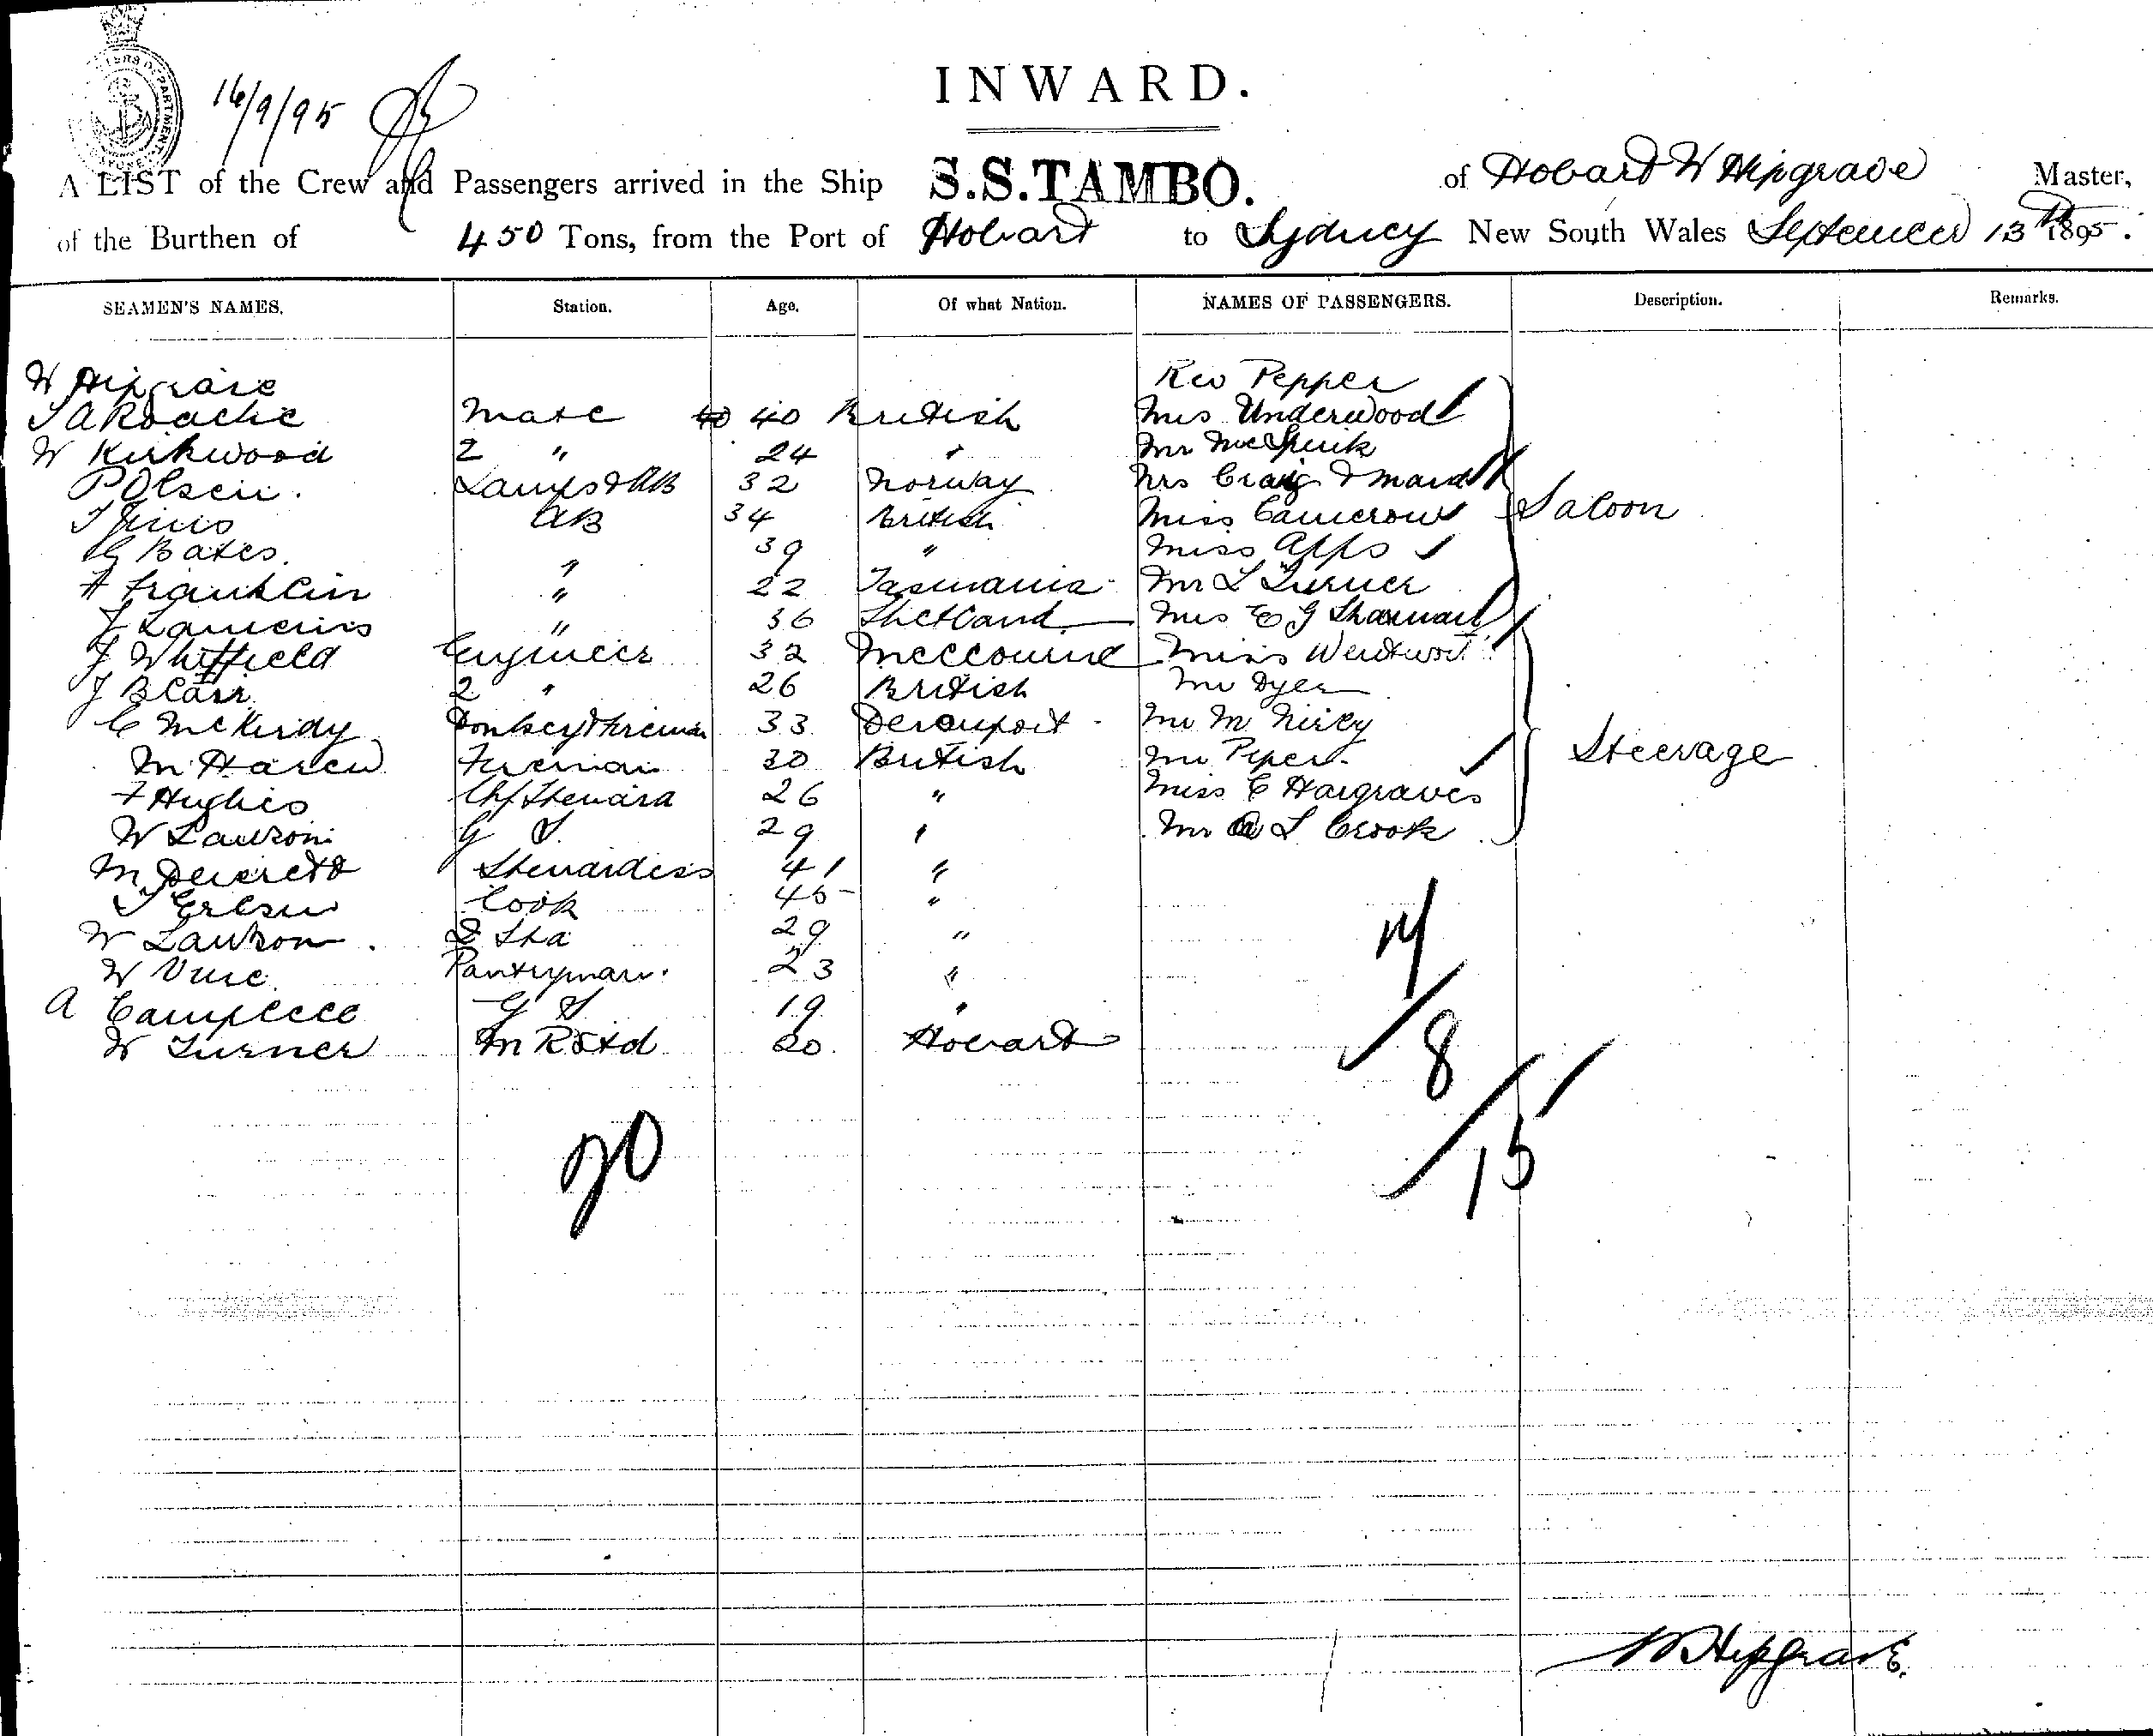 16/9/95
INWARD.
A LIST of the Crew and Passengers arrived in the Ship S.S.TAMBO. of Hobart W Hipgrave Master,
of the Burthen of 450 Tons, from the Port of Hobart to Sydney New South Wales September 13th 1895.
SEAMEN'S NAMES. Station. Age. Of what Nation. NAMES OF PASSENGERS. Description. Remarks.
W Hipgrave Rev Pepper
J A Roache Mate 40 British Mrs Underwood
W Kirkwood 2 " 24 " Mr
P Olsen. Lamps & AB 32 Norway Mrs Craig & maid
AB 34 British Miss Cameron Saloon
G Bates. 39 " Miss Apps
F Franklin " 22 Tasmania Mr L Turner
J " 36 Shetland Mrs E G Sharman
J Whitfield Engineer 32 Melbourne Miss
J B Carr 2 " 26 British Mr Dyer
C McKirdy Donkey & Fireman 33 Devonport Mr M
M Haren Fireman 30 British Mr Piper Steerage
F Hughes Chf Steward 26 " Miss C Hargraves
W Lawson G S 29 " Mr A L Crook
M Stewardess 41 "
Cook 45 "
W Lawson 2 29 "
W Pantryman. 23 "
A Campbell G S 19 "
W Turner M R 20 Hobart
14
8
15
20
W Hipgrave.